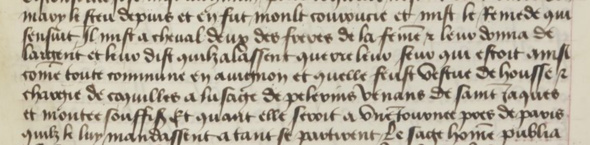 mary le sceu depuis et en fut moult courroucie et mist le Remede qui
sensuit Il mist a cheval deux des freres de la feme et leur donna de
largent et leur dist quilz alassent querre leur seur qui estoit ainsi
comme toute commune en avignon et quelle feust vestue de housse et
chargie de coquilles a lusage de pelerins venans de saint Jaques
et montee souffisã Et quant elle seroit a une Journee pres de paris
quilz le luy mandassent a tant se partirent Le sage home publia